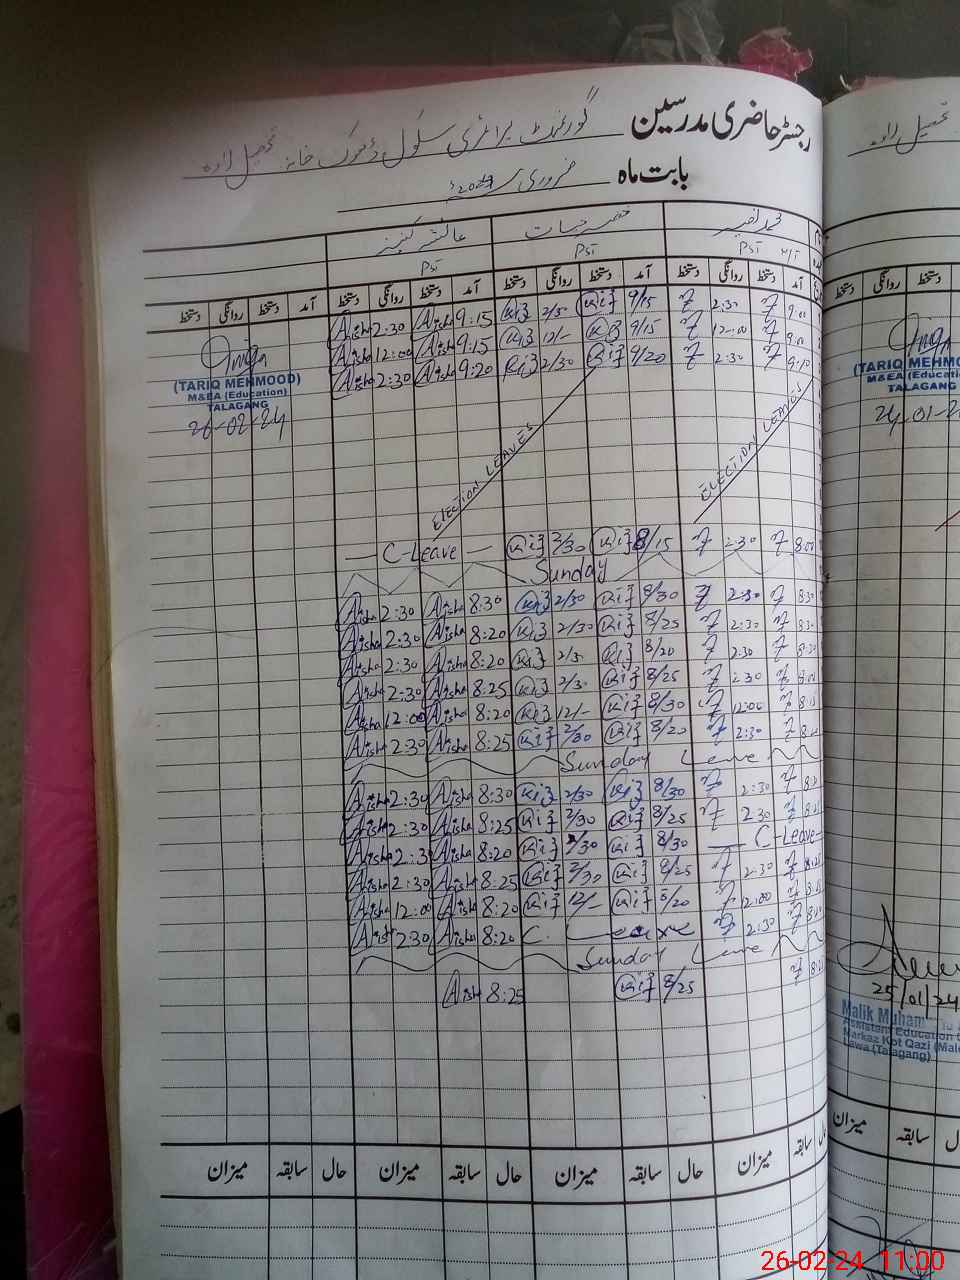 رجسٹر حاضری مدرسین گورنمنٹ پرائمری سکول ڈھوک خانہ تحصیل لاوہ
بابت ماہ فروری 2024ء
محمد نصیر خضر حیات عائشہ کنیز
PST PST PST
آمد دستخط روانگی دستخط آمد دستخط روانگی دستخط آمد دستخط روانگی دستخط آمد دستخط روانگی دستخط
Aisha 2:30 Aisha 9:15 Kiz 2/30 Kiz 9/15 2:30 9:00
Aisha 12:00 Aisha 9:15 Kiz 12/- Kiz 9/15 12:00 9:00
Aisha 2:30 Aisha 9:20 Kiz 2/30 Kiz 9/20 2:30 9:10
(TARIQ MEHMOOD)
M&EA (Education)
TALAGANG
26-02-24
ELECTION LEAVES
ELECTION LEAVES
C-Leave Kiz 2/30 Kiz 8/15 2:30 8:00
Sunday
Aisha 2:30 Aisha 8:30 Kiz 2/30 Kiz 8/30 2:30 8:30
Aisha 2:30 Aisha 8:20 Kiz 2/30 Kiz 8/25 2:30 8:30
Aisha 2:30 Aisha 8:20 Kiz 2/30 Kiz 8/20 2:30
Aisha 2:30 Aisha 8:25 Kiz 2/30 Kiz 8/25 2:30
Aisha 12:00 Aisha 8:20 Kiz 12/- Kiz 8/30 12:00 8:15
Aisha 2:30 Aisha 8:25 Kiz 2/30 Kiz 8/20 2:30
Sunday Leave
Aisha 2:30 Aisha 8:30 Kiz 2/30 Kiz 8/30 2:30
Aisha 2:30 Aisha 8:25 Kiz 2/30 Kiz 8/25 2:30
Aisha 2:3 Aisha 8:20 Kiz 2/30 Kiz 8/30 C-Leave
Aisha 2:30 Aisha 8:25 Kiz 2/30 Kiz 8/25 2:30 8:25
Aisha 12:00 Aisha 8:20 Kiz 12/- Kiz 8/20 12:00
Aisha 2:30 Aisha 8:20 C. Leave 2:30
Sunday Leave
Aisha 8:25 Kiz 8/25
حال سابقہ میزان حال سابقہ میزان حال سابقہ میزان حال سابقہ میزان
تحصیل لاوہ
روانگی دستخط
(TARIQ MEHMO
M&EA (Educatio
TALAGANG
25/01/24
Malik Muham
Assistant Education
Markaz Kot Qazi (Male
Lawa (Talagang)
سابقہ میزان
26-02-24 11:00